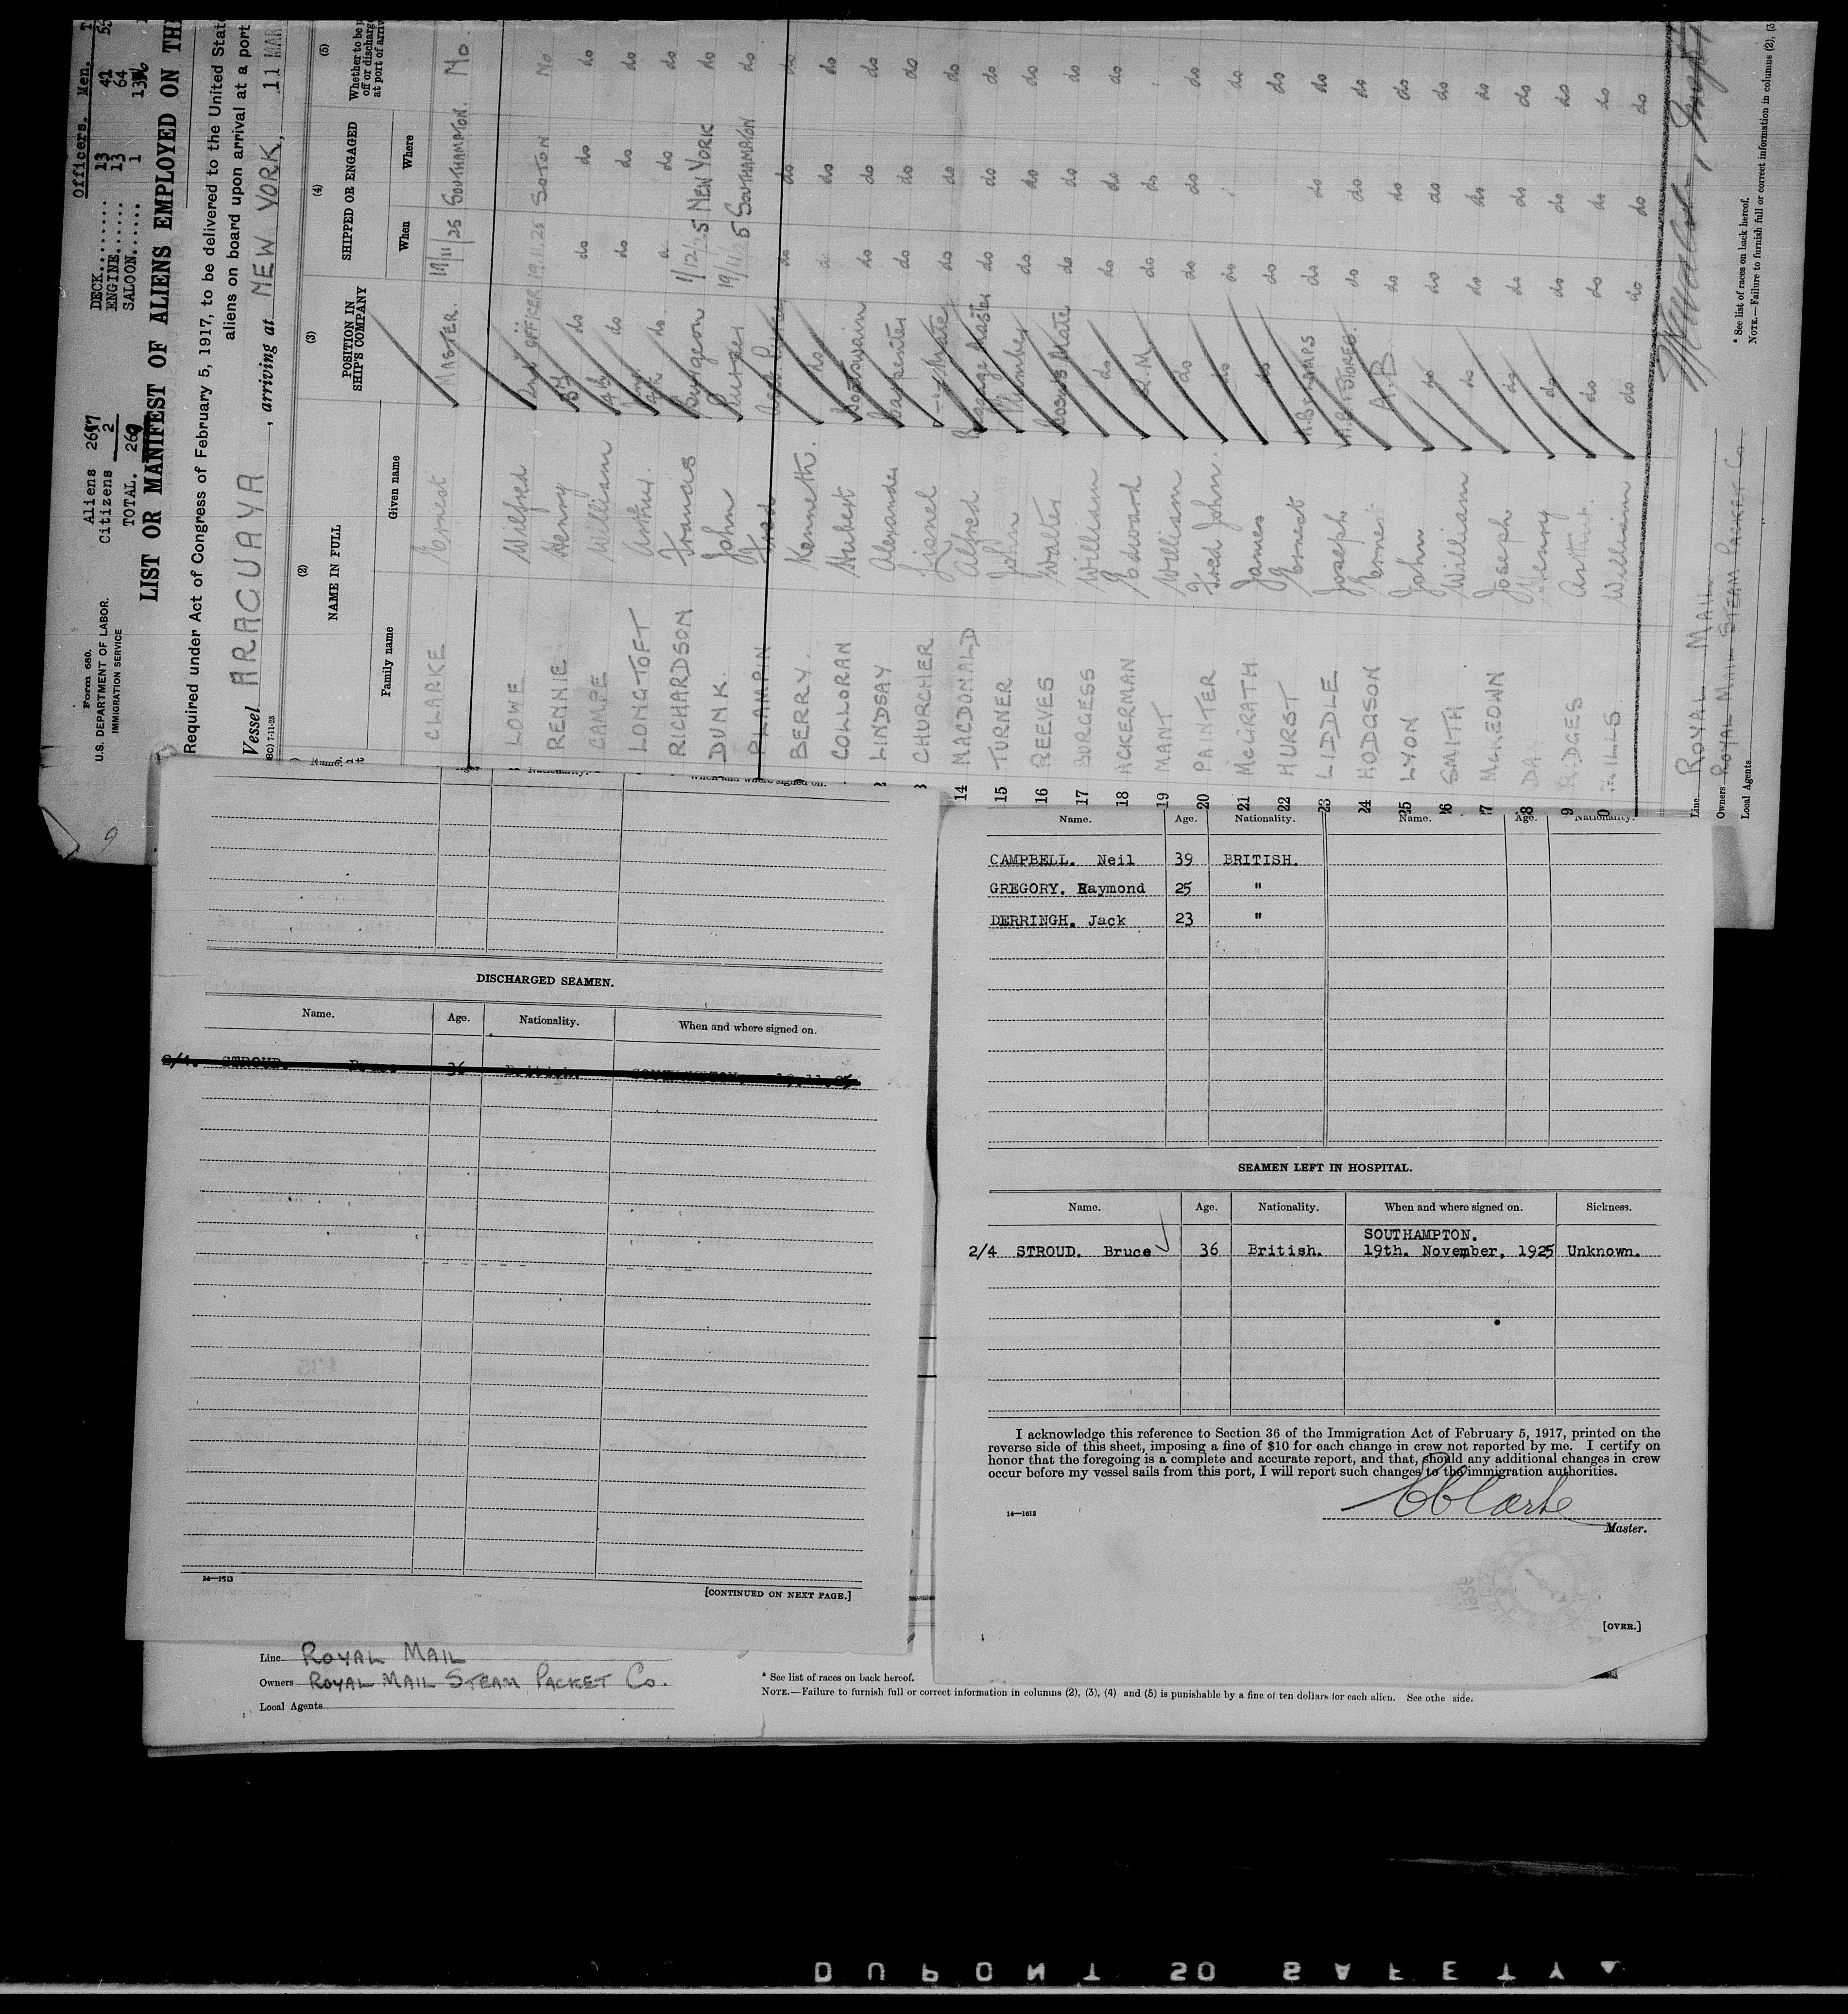 Form 680.
U.S. DEPARTMENT OF LABOR.
IMMIGRATION SERVICE
Aliens
Citizens 2
TOTAL.
Officers. Men.
DECK........ 13 42
ENGINE...... 13 64
SALOON...... 1
LIST OR MANIFEST OF ALIENS EMPLOYED ON TH
Required under Act of Congress of February 5, 1917, to be delivered to the United Stat
aliens on board upon arrival at a port
Vessel ARAGUAYA, arriving at NEW YORK, 11 MAR
(2) (3) (4) (5)
NAME IN FULL
POSITION IN SHIP'S COMPANY
SHIPPED OR ENGAGED
Whether to be off or discharge at port of arriv
Family name Given name When Where
CLARKE Ernest MASTER. 19/11/25 SOUTHAMPTON. No.
LOWE Wilfred 2nd OFFICER 19.11.25 SOTON No
RENNIE Henry 3rd do do do do
CAMPE William 4th do do do do
LONGTOFT Arthur. do. do do
RICHARDSON Francis Surgeon 1/12/25 NEW YORK do
DUNK. John Purser 19/11/25 SOUTHAMPTON do
PLAMPIN Fred do do do
BERRY. Kenneth. do do do do
COLLORAN Hubert Boatswain do do do
LINDSAY Alexander Carpenter do do do
CHURCHER Lionel Mate do do do
14 MACDONALD Alfred Baggage Master do do do
15 TURNER John Plumber do do do
16 REEVES Walter Bosuns Mate do do do
17 BURGESS William do do do do
18 ACKERMAN Edward Q.M. do do
19 MANT William do do do do
20 PAINTER Fred John. do do do
21 McGRATH James do do do
22 HURST Ernest LAMPS do do do
23 LIDDLE Joseph STORES. do do do
24 HODGSON A.B. do do do
25 LYON John do do do do
26 SMITH William do do do do
27 McKEOWN Joseph do do do do
28 Henry do do do do
RIDGES Arthur. do do do do
William do do do do
Line ROYAL MAIL
Owners ROYAL MAIL STEAM PACKET Co
Local Agents
* See list of races on back hereof.
NOTE.—Failure to furnish full or correct information in columns (2), (3
DISCHARGED SEAMEN.
Name. Age. Nationality. When and where signed on.
2/4. STROUD. Bruce 36 British. SOUTHAMPTON, 19.11.25.
14—1613
[CONTINUED ON NEXT PAGE.]
Name. Age. Nationality. Name. Age. Nationality.
CAMPBELL. Neil 39 BRITISH.
GREGORY. Raymond 25 "
DERRINGH. Jack 23 "
SEAMEN LEFT IN HOSPITAL.
Name. Age. Nationality. When and where signed on. Sickness.
SOUTHAMPTON.
2/4 STROUD. Bruce 36 British. 19th. November, 1925 Unknown.
I acknowledge this reference to Section 36 of the Immigration Act of February 5, 1917, printed on the
reverse side of this sheet, imposing a fine of $10 for each change in crew not reported by me. I certify on
honor that the foregoing is a complete and accurate report, and that, should any additional changes in crew
occur before my vessel sails from this port, I will report such changes to the immigration authorities.
14—1613
Master.
[OVER.]
Line ROYAL MAIL
Owners ROYAL MAIL STEAM PACKET Co.
Local Agents
* See list of races on back hereof.
NOTE.—Failure to furnish full or correct information in columns (2), (3), (4) and (5) is punishable by a fine of ten dollars for each alien. See othe side.
DUPONT SO SAFETY